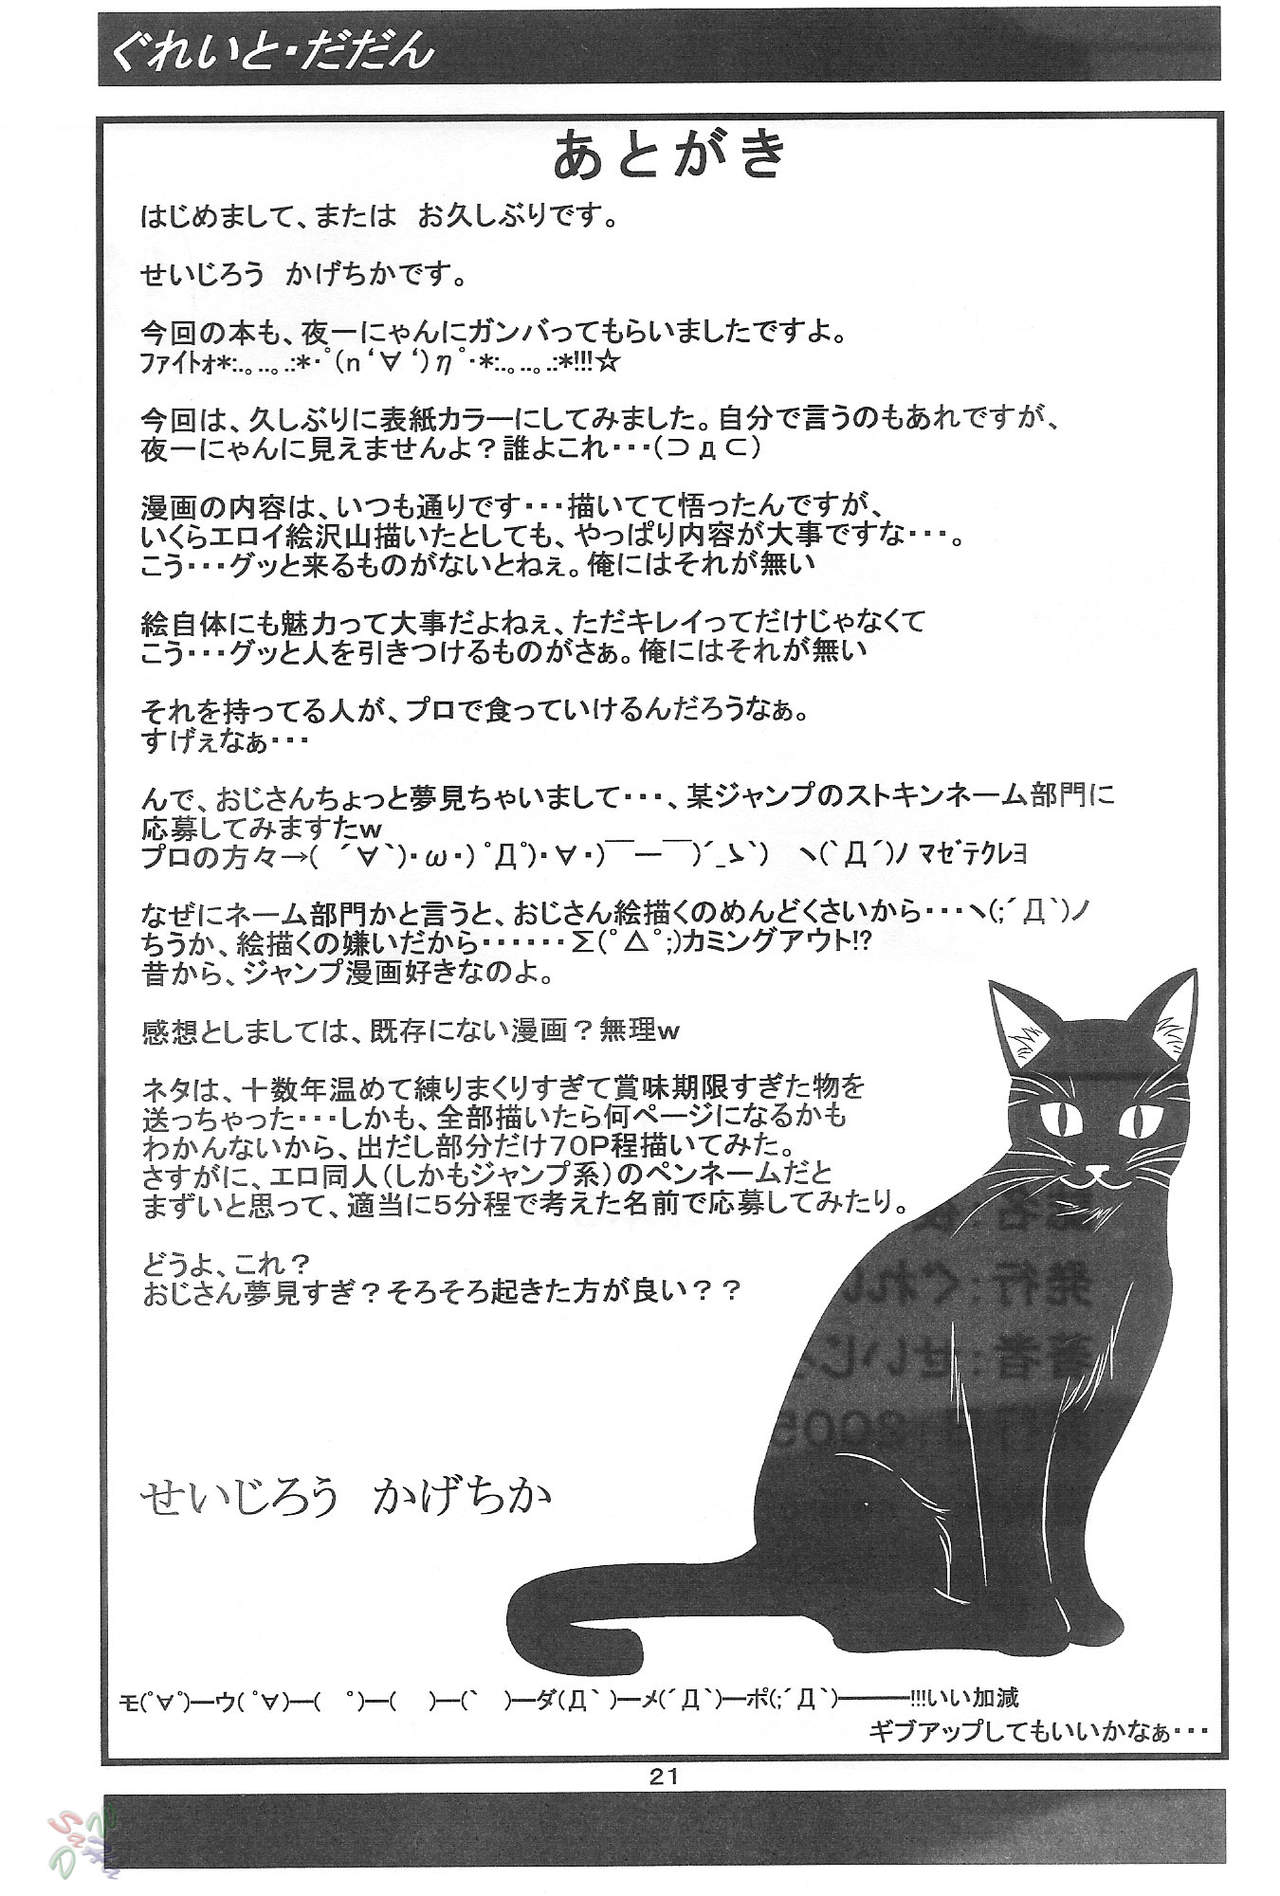 ぐれいと・だだん
あとがき
はじめまして、または　お久しぶりです。
せいじろう　かげちかです。
今回の本も、夜一にゃんにガンバってもらいましたですよ。
ﾌｧｲﾄｫ*:.｡..｡.:*･ﾟ(n‘∀‘)ηﾟ･*:.｡..｡.:*!!!☆
今回は、久しぶりに表紙カラーにしてみました。自分で言うのもあれですが、
夜一にゃんに見えませんよ？誰よこれ・・・(⊃д⊂)
漫画の内容は、いつも通りです・・・描いてて悟ったんですが、
いくらエロイ絵沢山描いたとしても、やっぱり内容が大事ですな・・・。
こう・・・グッと来るものがないとねぇ。俺にはそれが無い
絵自体にも魅力って大事だよねぇ、ただキレイってだけじゃなくて
こう・・・グッと人を引きつけるものがさぁ。俺にはそれが無い
それを持ってる人が、プロで食っていけるんだろうなぁ。
すげぇなぁ・・・
んで、おじさんちょっと夢見ちゃいまして・・・、某ジャンプのストキンネーム部門に
応募してみますたｗ
プロの方々→( ´∀`)・ω・)ﾟДﾟ)・∀・)￣ー￣)´_ゝ`)　ヽ(`Д´)ノ ﾏｾﾞﾃｸﾚﾖ
なぜにネーム部門かと言うと、おじさん絵描くのめんどくさいから・・・ヽ(;´Д`)ノ
ちうか、絵描くの嫌いだから・・・・・・Σ(ﾟ△ﾟ;)カミングアウト!?
昔から、ジャンプ漫画好きなのよ。
感想としましては、既存にない漫画？無理ｗ
ネタは、十数年温めて練りまくりすぎて賞味期限すぎた物を
送っちゃった・・・しかも、全部描いたら何ページになるかも
わかんないから、出だし部分だけ70P程描いてみた。
さすがに、エロ同人(しかもジャンプ系)のペンネームだと
まずいと思って、適当に5分程で考えた名前で応募してみたり。
どうよ、これ？
おじさん夢見すぎ？そろそろ起きた方が良い？？
せいじろう　かげちか
モ(ﾟ∀ﾟ)━ウ( ﾟ∀)━(　ﾟ)━(　)━(`　)━ダ(Д` )━メ(´Д`)━ポ(;´Д`)━━━!!!いい加減
ギブアップしてもいいかなぁ・・・
21